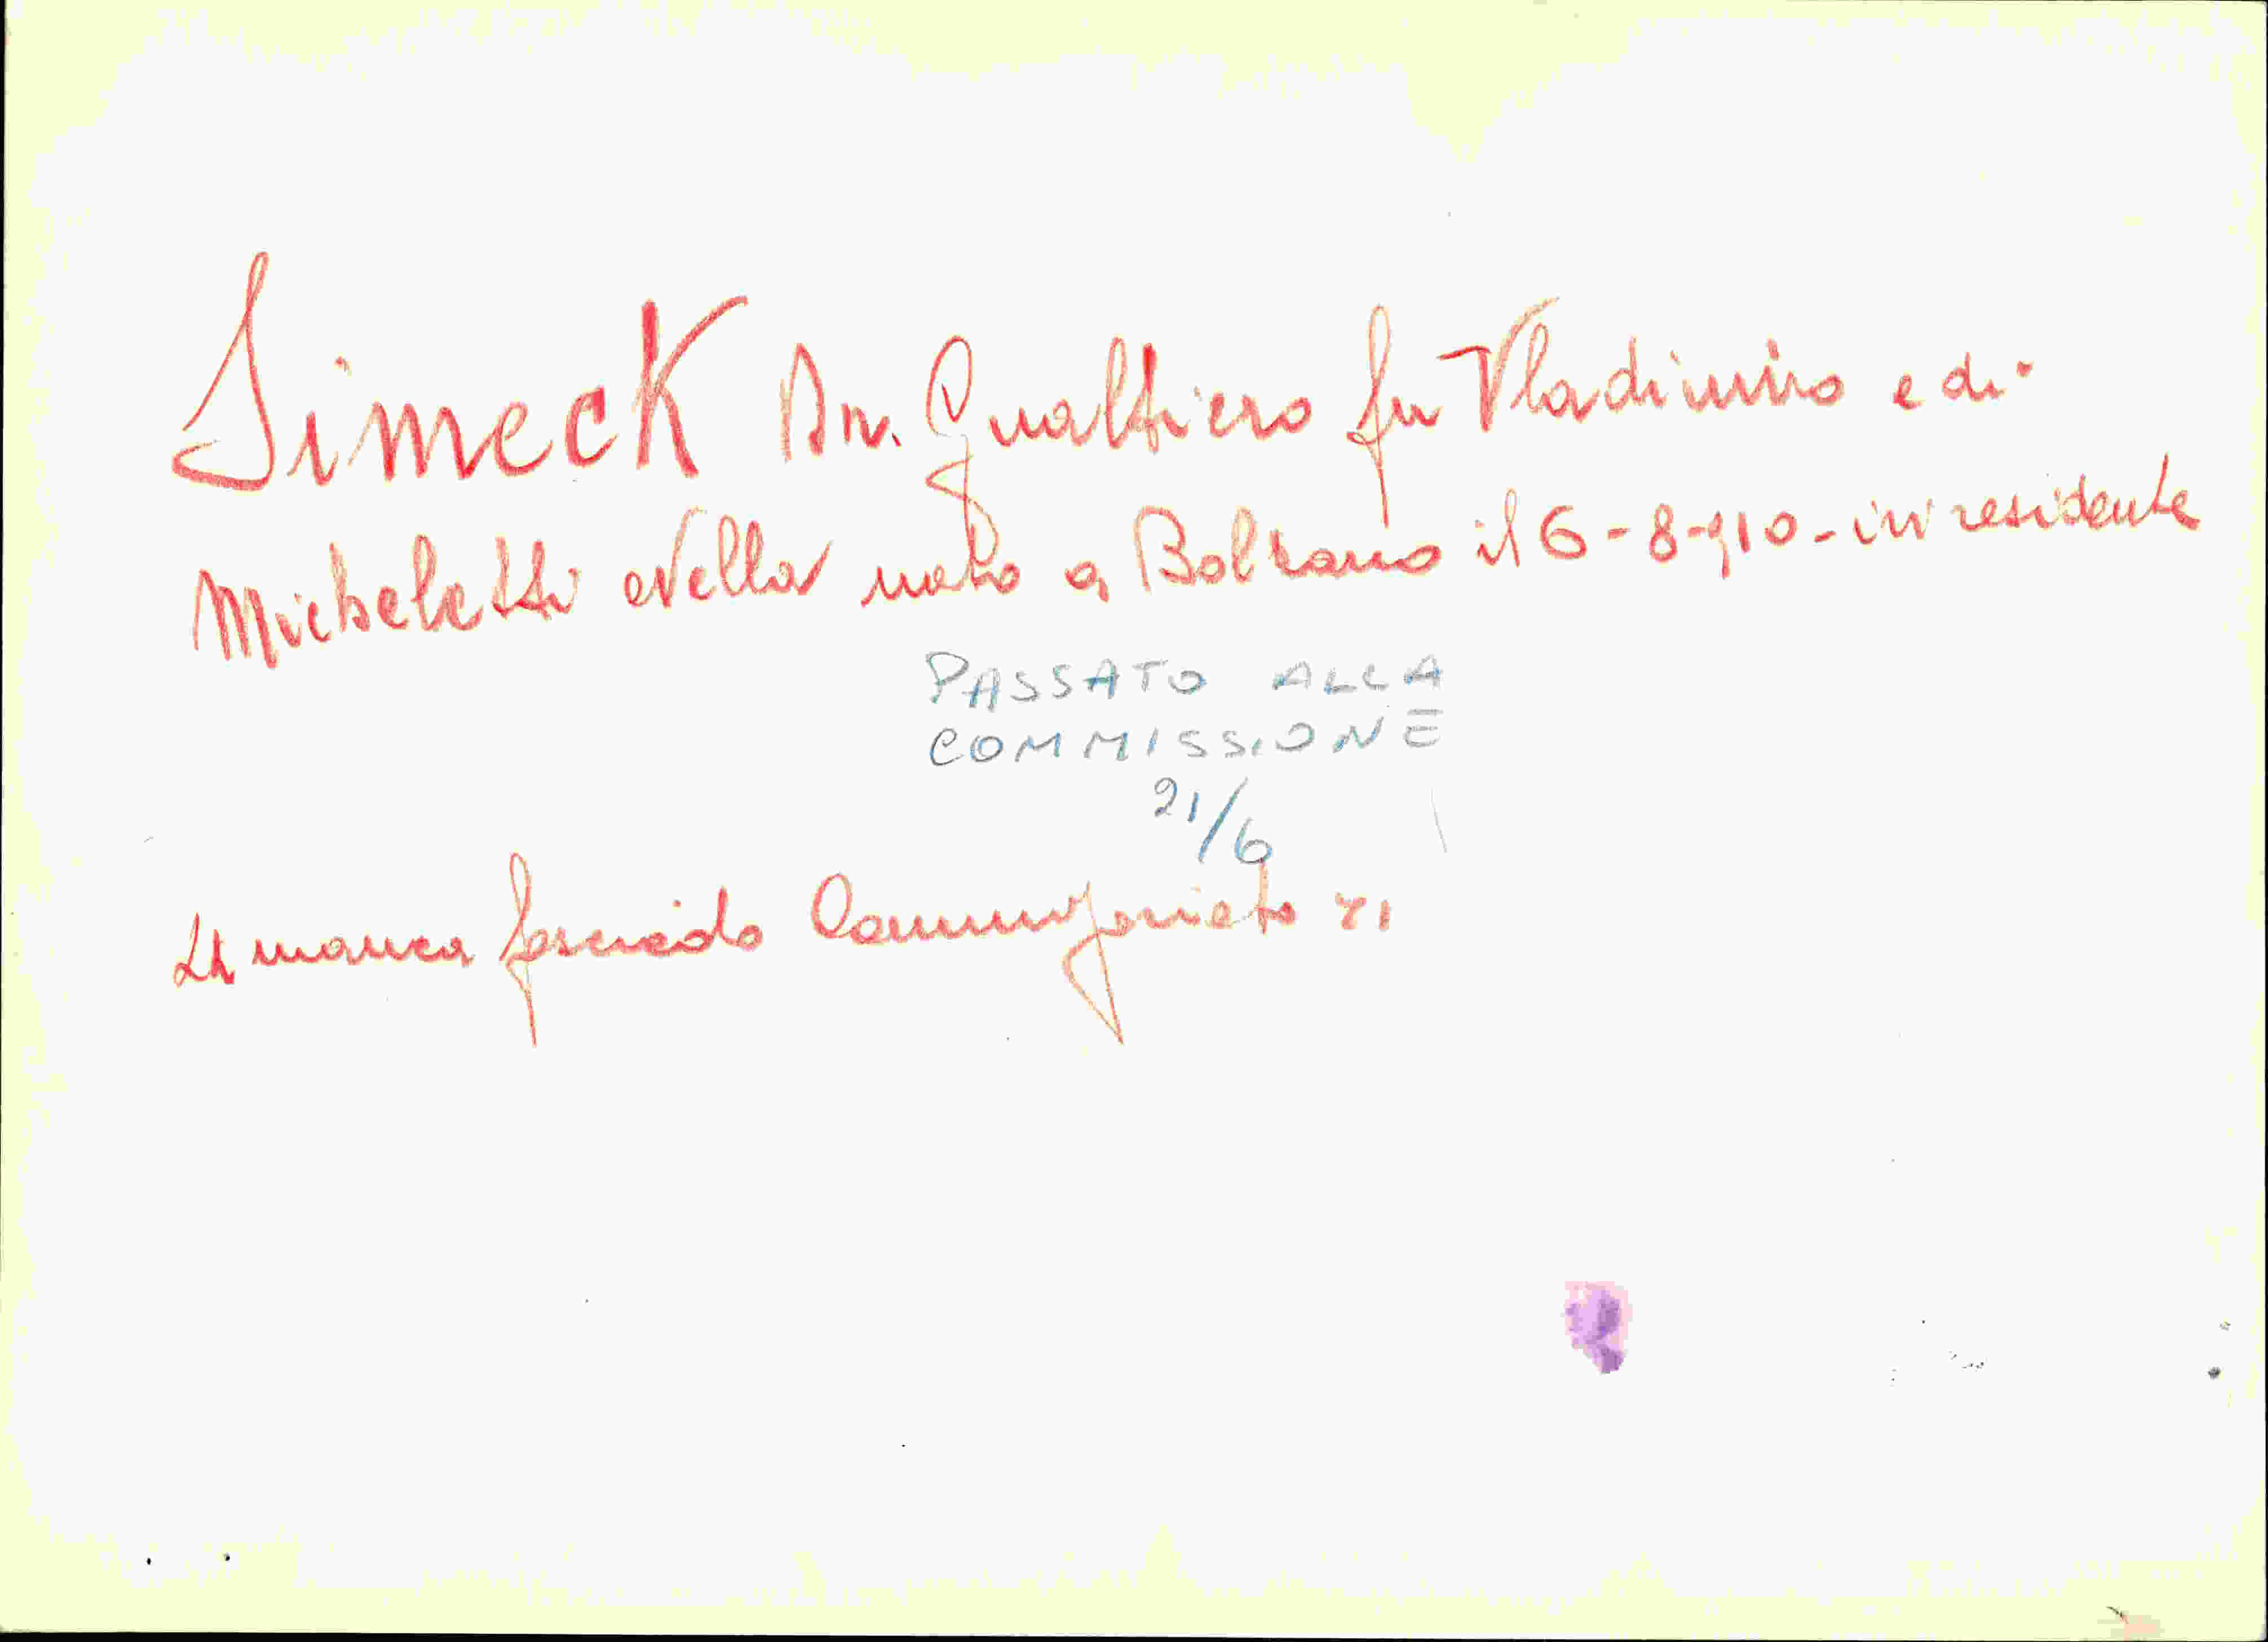 Simeck Dr. Gualtiero fu Vladimiro e di
Micheletti Nella nato a Bolzano il 6-8-910- ivi residente
PASSATO ALLA
COMMISSIONE
21/6
manca fascicolo